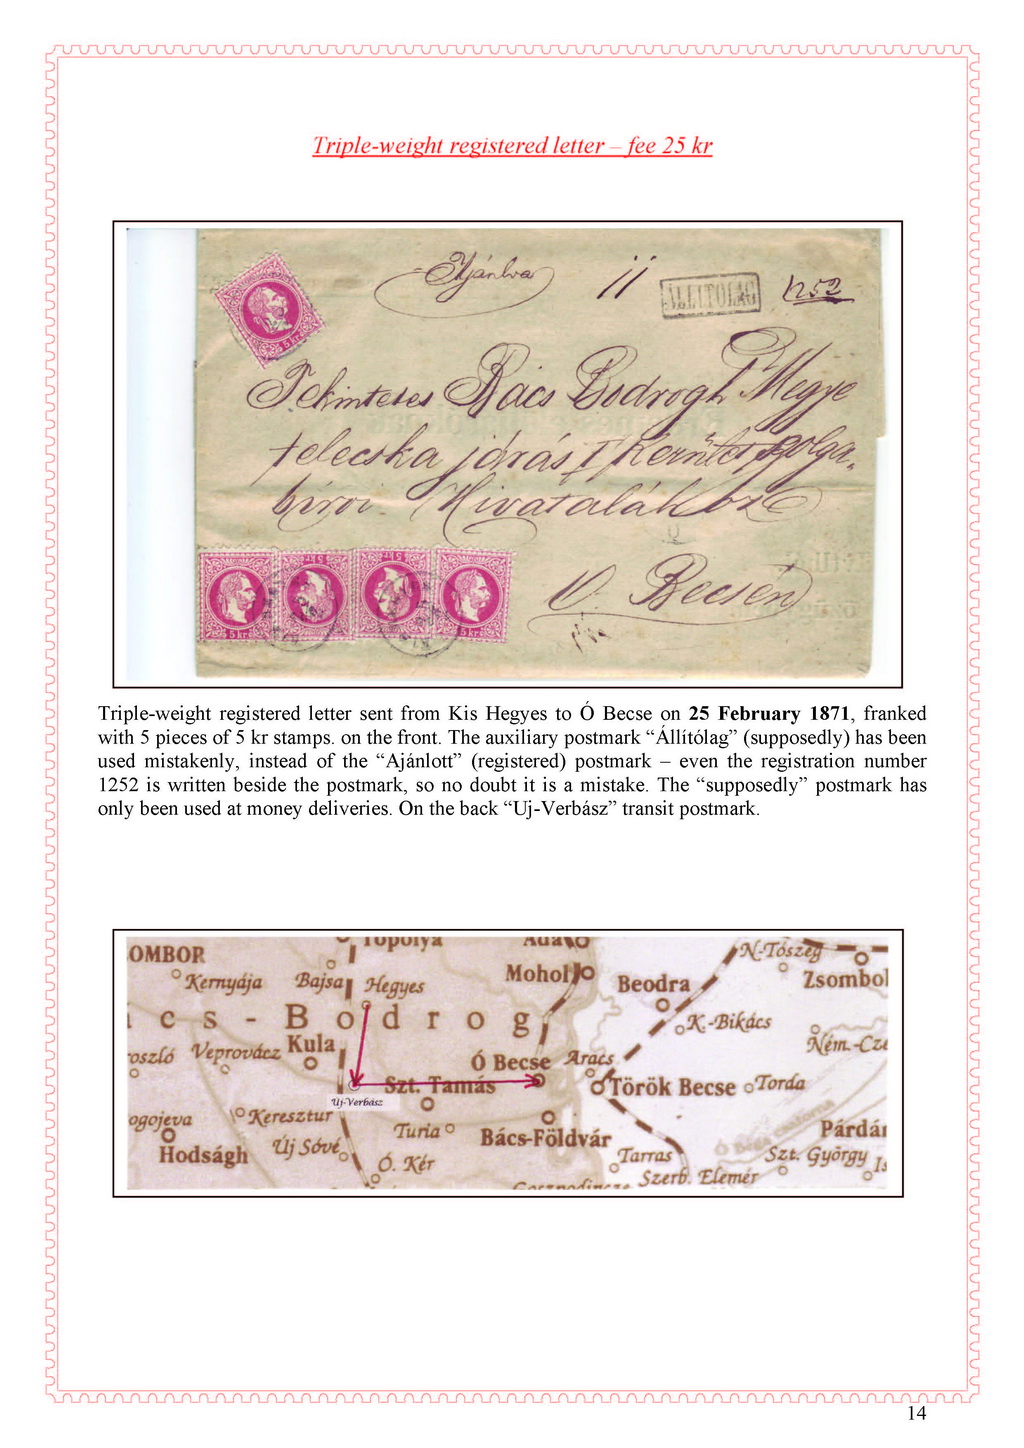 Triple-weight registered letter – fee 25 kr
Ajánlva
11
ÁLLÍTÓLAG
1252
5 kr
Tekintetes Bács Bodrogh Megye
telecskai járás I Kerület szolga-
birói Hivatalához
Ó Becsén
5 kr
5 kr
5 kr
5 kr
Triple-weight registered letter sent from Kis Hegyes to Ó Becse on 25 February 1871, franked
with 5 pieces of 5 kr stamps. on the front. The auxiliary postmark “Állítólag” (supposedly) has been
used mistakenly, instead of the “Ajánlott” (registered) postmark – even the registration number
1252 is written beside the postmark, so no doubt it is a mistake. The “supposedly” postmark has
only been used at money deliveries. On the back “Uj-Verbász” transit postmark.
OMBOR
Topolya
Kernyája
Bajsa
Hegyes
Mohol
Beodra
N-Tószeg
Zsombol
cs - Bodrog
K.-Bikács
oszló
Veprovácz
Kula
Ó Becse
Aracs
Ném.-Cze
Uj-Verbász
Szt. Tamás
Török Becse
Torda
ogojeva
Keresztur
Turia
Bács-Földvár
Párdán
Hodságh
Új Sóvé
Ó. Kér
Tarras
Szt. György
Szerb. Elemér
14